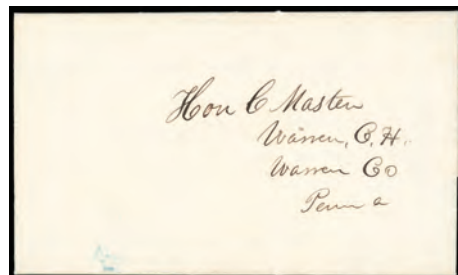 Hon C Masten
Warren, C. H.
Warren Co
Penn a